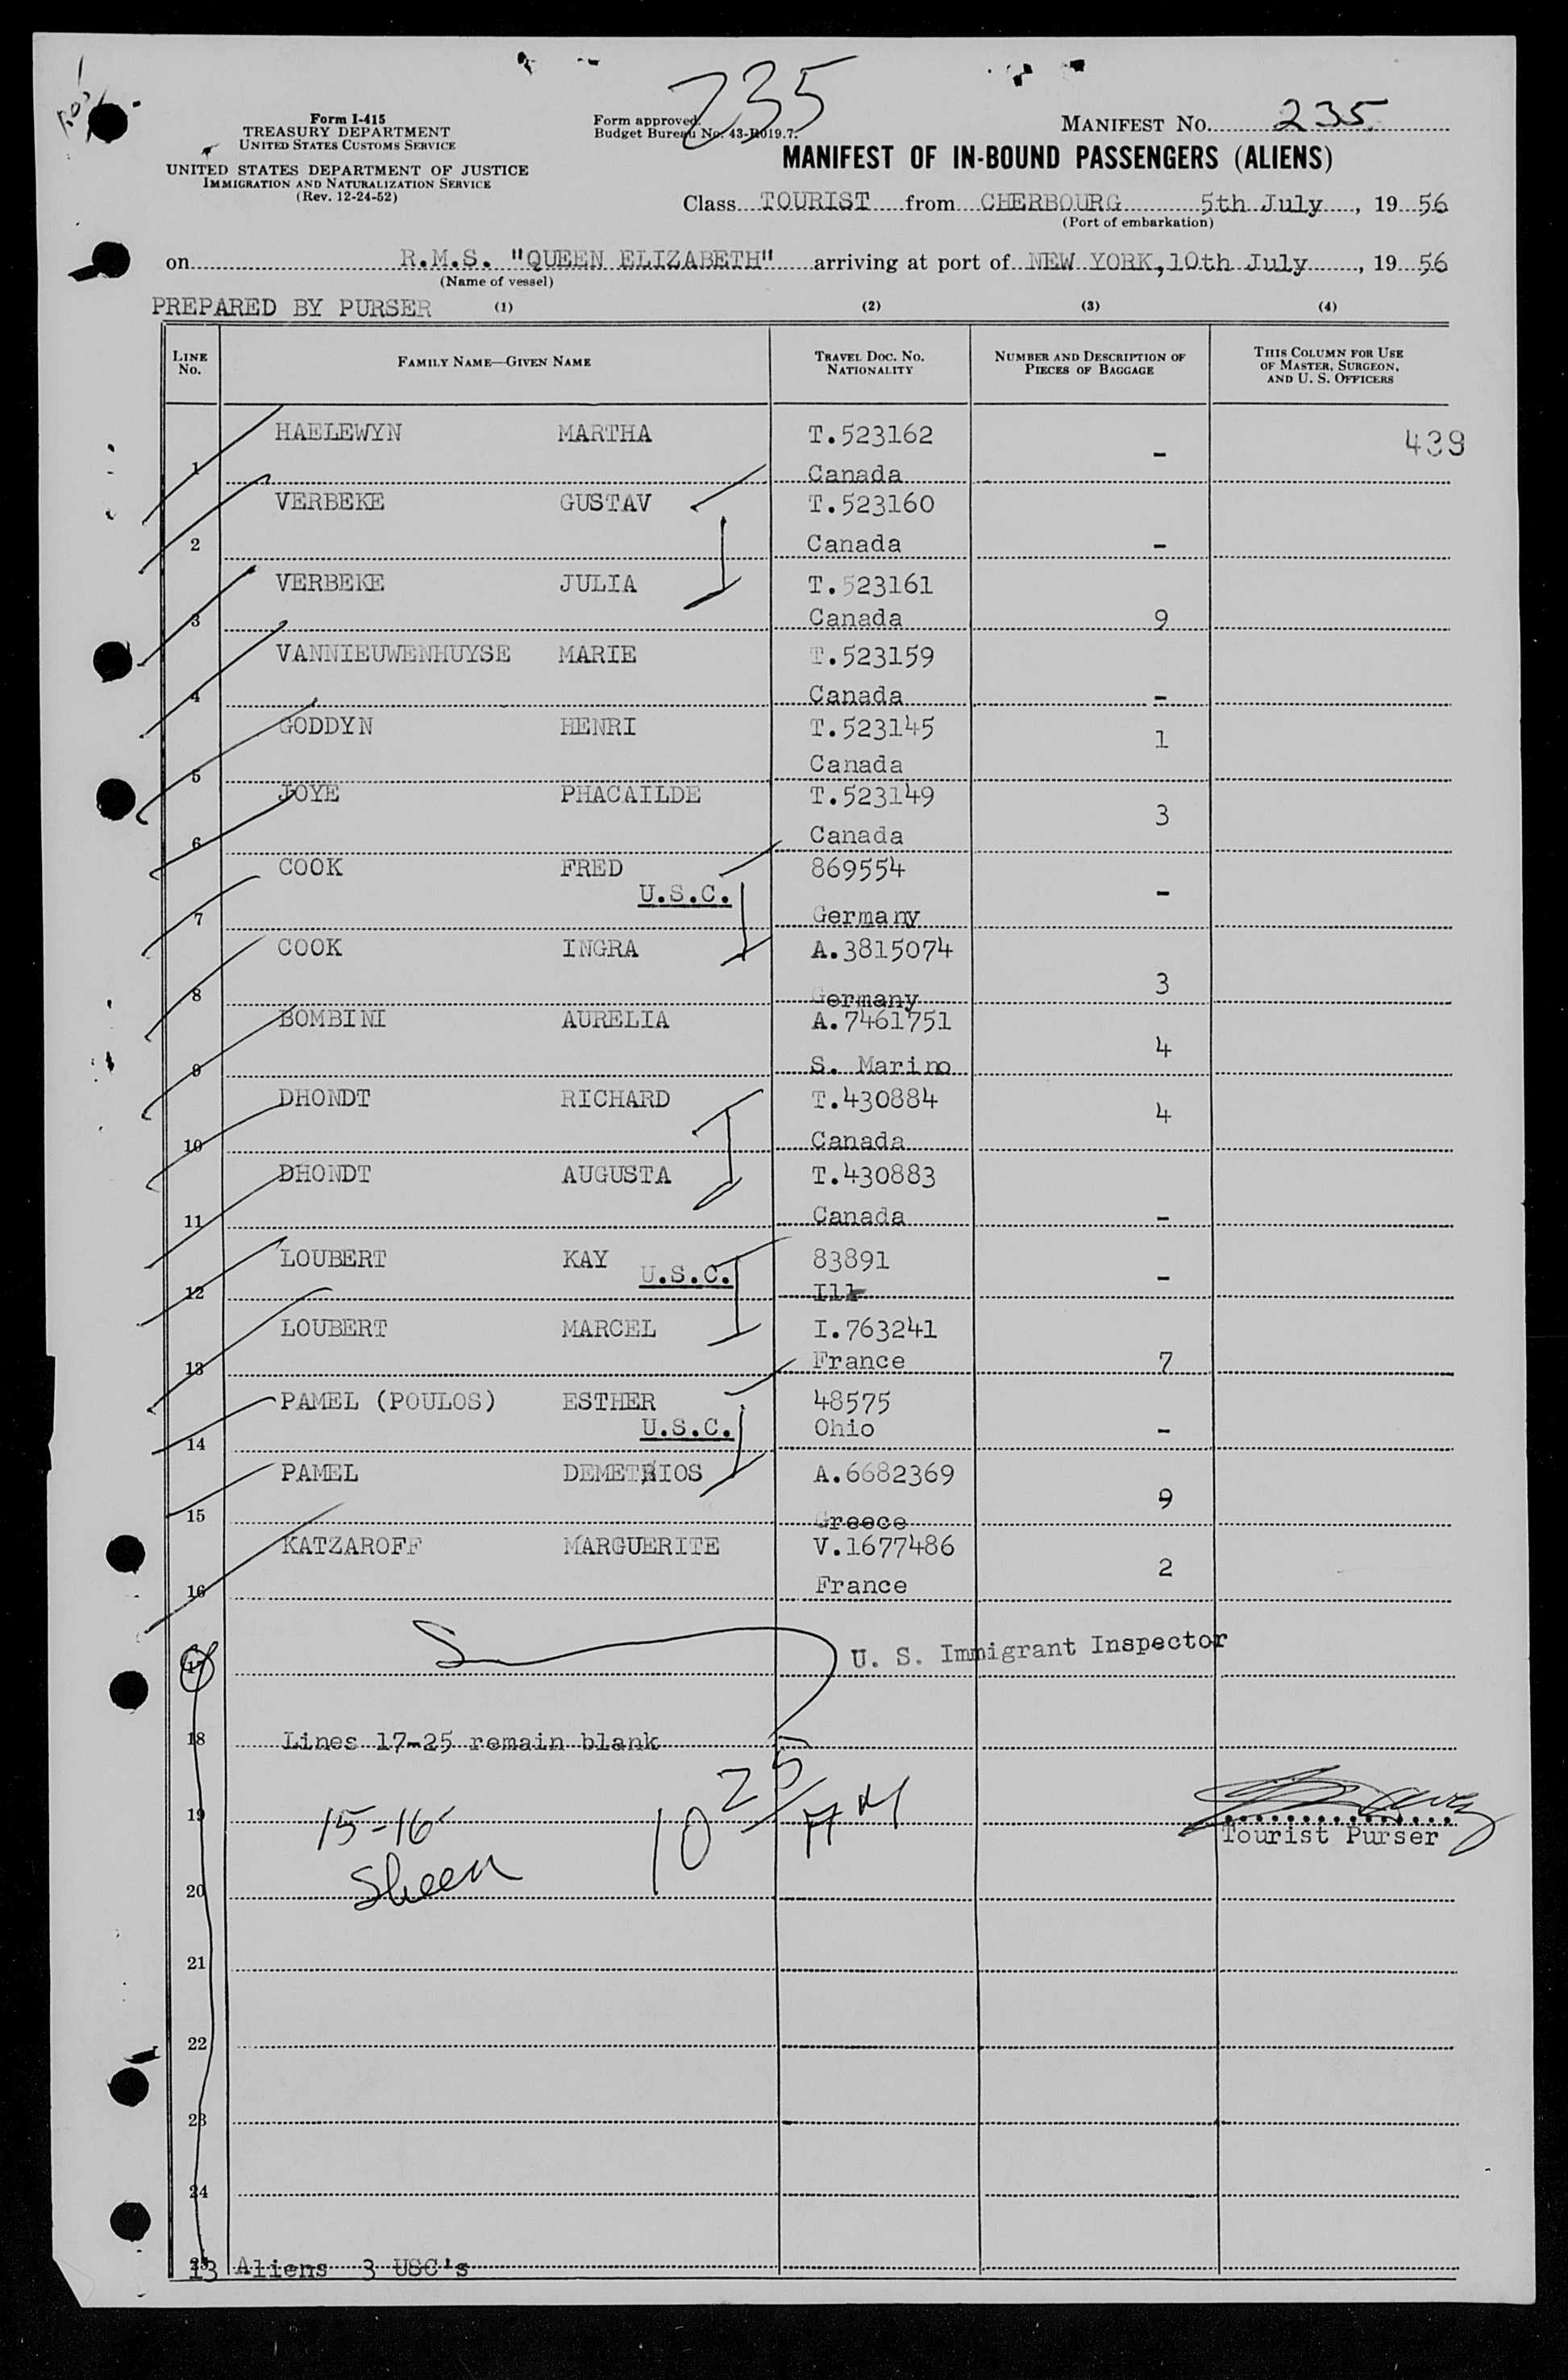 235
Form I-415
TREASURY DEPARTMENT
UNITED STATES CUSTOMS SERVICE
UNITED STATES DEPARTMENT OF JUSTICE
IMMIGRATION AND NATURALIZATION SERVICE
(Rev. 12-24-52)
Form approved.
Budget Bureau No. 43-R019.7.
MANIFEST NO. 235
MANIFEST OF IN-BOUND PASSENGERS (ALIENS)
Class TOURIST from CHERBOURG 5th July, 19 56
(Port of embarkation)
on R.M.S. "QUEEN ELIZABETH" arriving at port of NEW YORK, 10th July, 19 56
(Name of vessel)
PREPARED BY PURSER (1) (2) (3) (4)
LINE NO. FAMILY NAME—GIVEN NAME TRAVEL DOC. NO. NATIONALITY NUMBER AND DESCRIPTION OF PIECES OF BAGGAGE THIS COLUMN FOR USE OF MASTER, SURGEON, AND U. S. OFFICERS
HAELEWYN MARTHA T.523162 439
1 Canada -
VERBEKE GUSTAV T.523160
2 Canada -
VERBEKE JULIA T.523161
3 Canada 9
VANNIEUWENHUYSE MARIE T.523159
4 Canada -
GODDYN HENRI T.523145 1
5 Canada
JOYE PHACAILDE T.523149 3
6 Canada
COOK FRED 869554
U.S.C. -
7 Germany
COOK INGRA A.3815074
8 Germany 3
BOMBINI AURELIA A.7461751 4
9 S. Marino
DHONDT RICHARD T.430884 4
10 Canada
DHONDT AUGUSTA T.430883
11 Canada -
LOUBERT KAY 83891
U.S.C. -
12 Ill
LOUBERT MARCEL I.763241
13 France 7
PAMEL (POULOS) ESTHER 48575
14 U.S.C. Ohio -
PAMEL DEMETRIOS A.6682369
15 Greece 9
KATZAROFF MARGUERITE V.1677486
16 France 2
17 U. S. Immigrant Inspector
18 Lines 17-25 remain blank
19 15-16 10 25/ AM
Tourist Purser
20 Sheen
21
22
23
24
25
13 Aliens 3 USC's